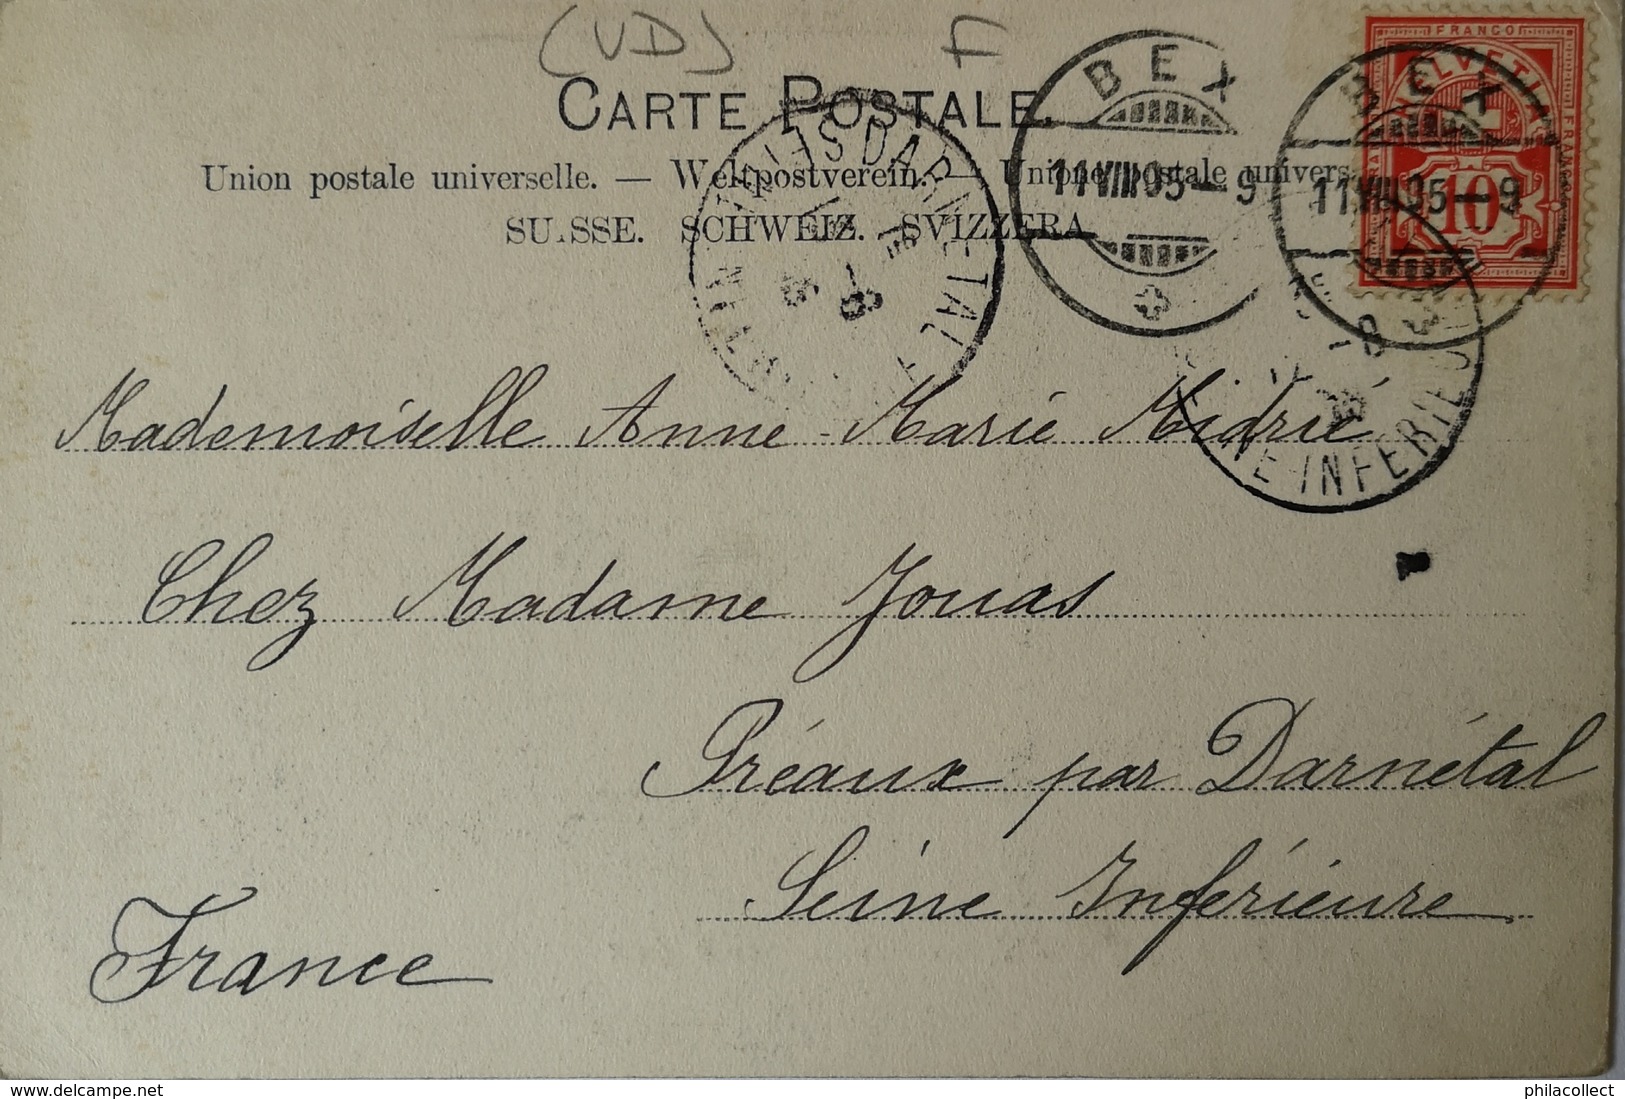 (VD) F
CARTE POSTALE.
Union postale universelle. — Weltpostverein. — Unione postale univers
SUISSE. SCHWEIZ. SVIZZERA
FRANCO
HELVETIA
FRANCO
10
BEX
11 VIII 05 — 9
BEX
11 VIII 05 — 9
DARNETAL
INFERIEURE
Mademoiselle Anne-Marie Midrié
Chez Madame Jouas
Préaux par Darnétal
Seine Inférieure
France
philacollect